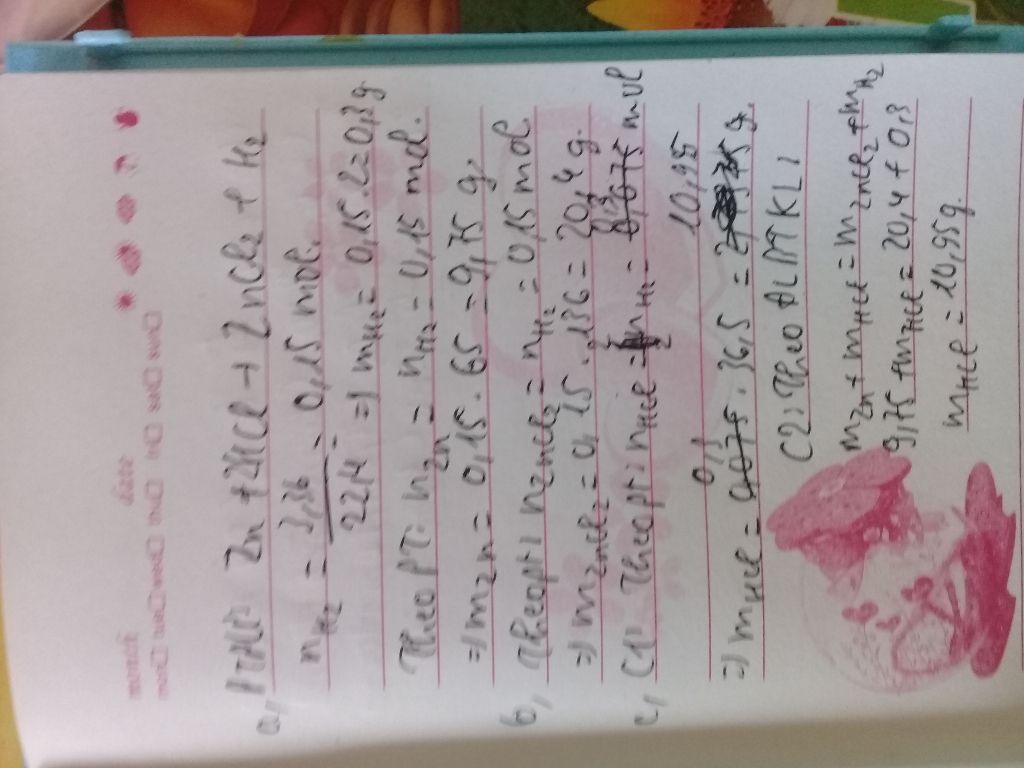 month date
mon tue wed thu fri sat sun
a, PTHH: Zn + 2HCl → ZnCl2 + H2
nH2 = 3,36 / 22,4 = 0,15 mol.
=> mH2 = 0,15.2 = 0,3g
Theo PT: nZn = nH2 = 0,15 mol.
=> mZn = 0,15 . 65 = 9,75 g.
b, Theo pt: nZnCl2 = nH2 = 0,15 mol.
=> mZnCl2 = 0,15 . 136 = 20,4 g.
c, C1: Theo pt: nHCl = nH2 = 0,3 mol
=> mHCl = 0,3 . 36,5 = 10,95 g.
C2: Theo ĐLBTKL:
mZn + mHCl = mZnCl2 + mH2
9,75 + mHCl = 20,4 + 0,3
mHCl = 10,95g.